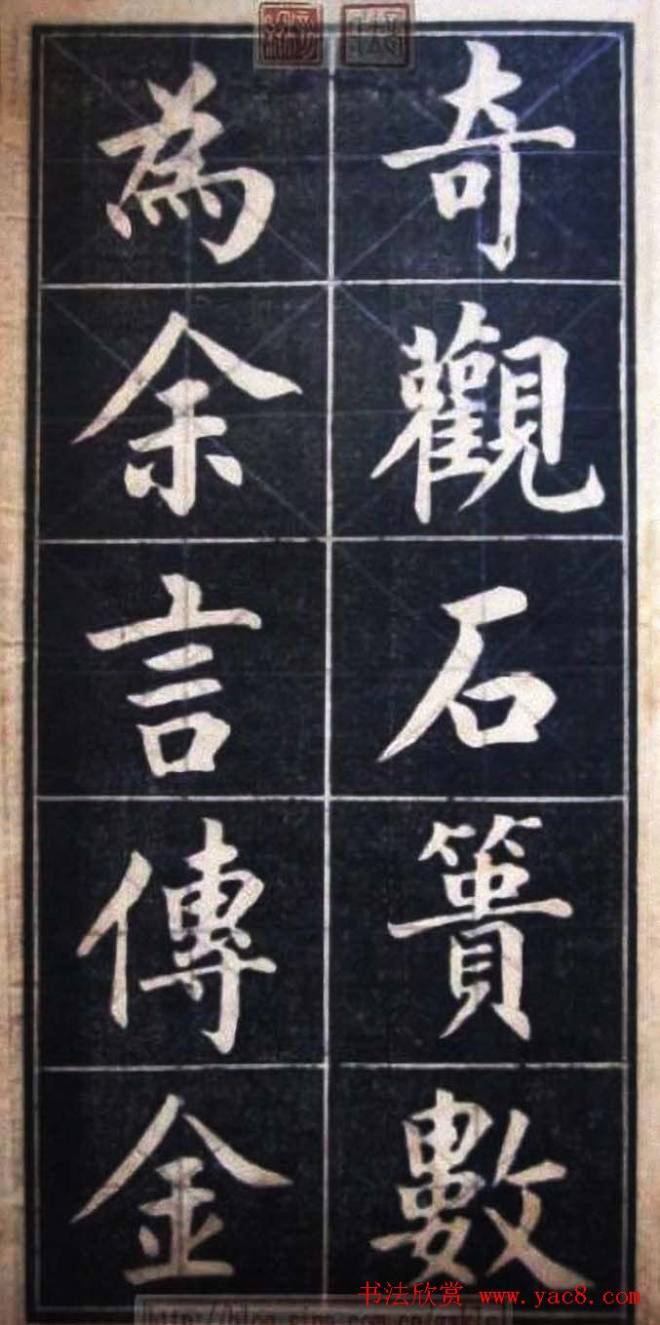 奇觀石簣數
為余言傳金
书法欣赏 www.yac8.com